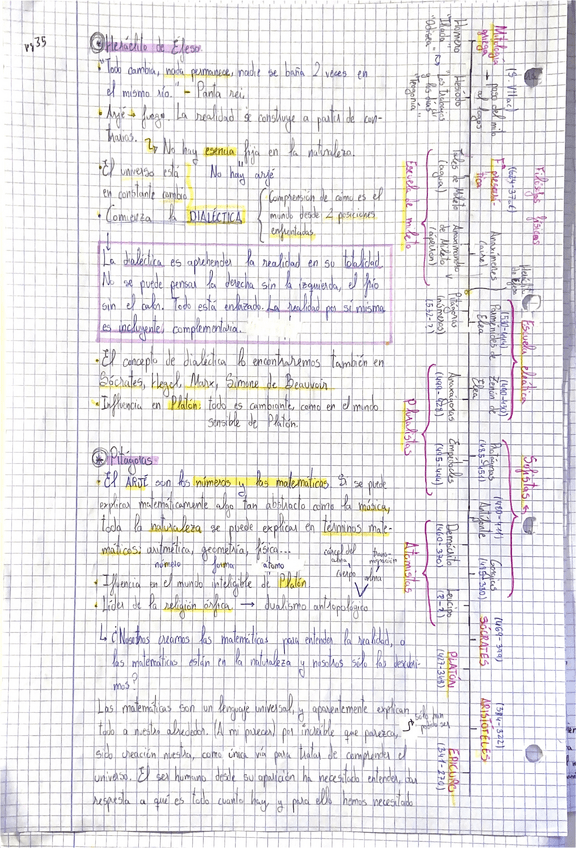 pg 35
Heráclito de Éfeso.
• "Todo cambia, nada permanece, nadie se baña 2 veces en
el mismo río." - Panta rei.
• Arjé → fuego. La realidad se construye a partir de con-
trarios. ↳ No hay esencia fija en la naturaleza.
• El universo está No hay arjé
en constante cambio
• Comienza la DIALÉCTICA
Comprensión de cómo es el
mundo desde 2 posiciones
enfrentadas.
La dialéctica es aprehender la realidad en su totalidad.
No se puede pensar la derecha sin la izquierda, el frío
sin el calor. Todo está enlazado. La realidad por sí misma
es incluyente, complementaria.
• El concepto de dialéctica lo encontraremos también en
Sócrates, Hegel, Marx, Simone de Beauvoir
• Influencia en Platón: todo es cambiante, como en el mundo
sensible de Platón.
Pitágoras
• El ARJÉ son los números y las matemáticas. Si se puede
explicar matemáticamente algo tan abstracto como la música,
toda la naturaleza se puede explicar en términos mate-
máticos: aritmética, geometría, física...
número forma átomo
cárcel del alma
trans-migración
cuerpo alma
• Influencia en el mundo inteligible de Platón
• Líder de la religión órfica → dualismo antropológico
↳ ¿Nosotros creamos las matemáticas para entender la realidad, o
las matemáticas están en la naturaleza y nosotros sólo las descubri-
mos?
Las matemáticas son un lenguaje universal, y aparentemente explican
todo a nuestro alrededor. (A mi parecer) por increíble que parezca,
sólo han podido ser
sido creación nuestra, como única vía para tratar de comprender el
universo. El ser humano desde su aparición ha necesitado entender, dar
respuesta a qué es todo cuanto hay, y para ello hemos necesitado
Mitología griega → paso del mito al logos
(S. VII ac)
Homero
"Ilíada"
"Odisea"
Hesíodo
"Los trabajos y los días"
"Teogonía"
Filósofos físicos
Fª presocrá-
tica
Escuela de mileto
Tales de Mileto
(agua)
Anaximandro
de Mileto
(ápeiron)
Anaxímenes
(aire)
Pitágoras
(números)
Escuela eleática
Parménides de
Elea
Zenón de
Elea
Pluralistas
Anaxágoras
Empédocles
Sofistas
Protágoras
Gorgias
Atomistas
Demócrito
(460-370)
Leucipo
SÓCRATES
PLATÓN
ARISTÓTELES
(384-322)
EPICURO
(341-270)